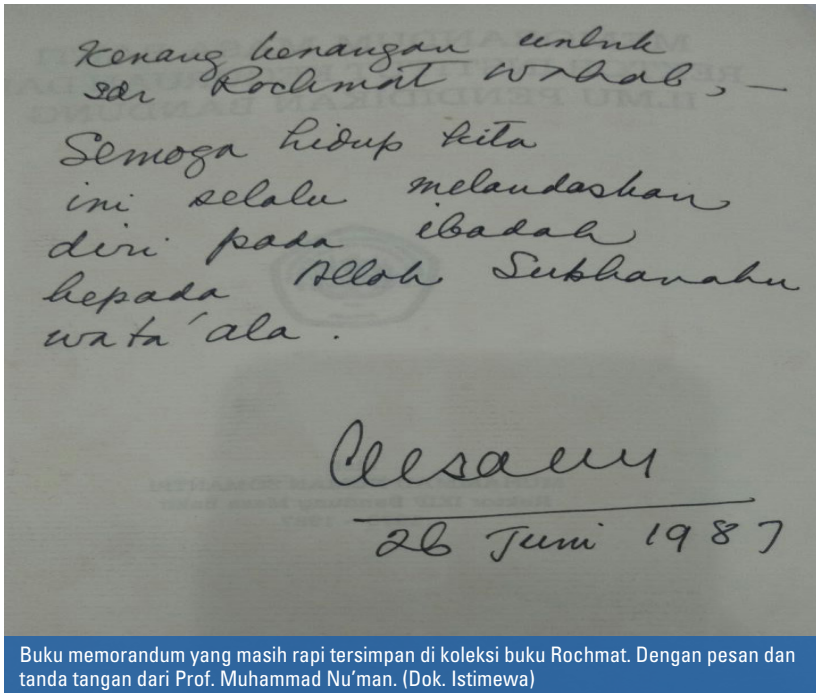 Kenang kenangan untuk
sdr Rochmat Wahab, —
Semoga hidup kita
ini selalu melandaskan
diri pada ibadah
kepada Alloh Subhanahu
wa ta'ala.
26 Juni 1987
Buku memorandum yang masih rapi tersimpan di koleksi buku Rochmat. Dengan pesan dan
tanda tangan dari Prof. Muhammad Nu'man. (Dok. Istimewa)